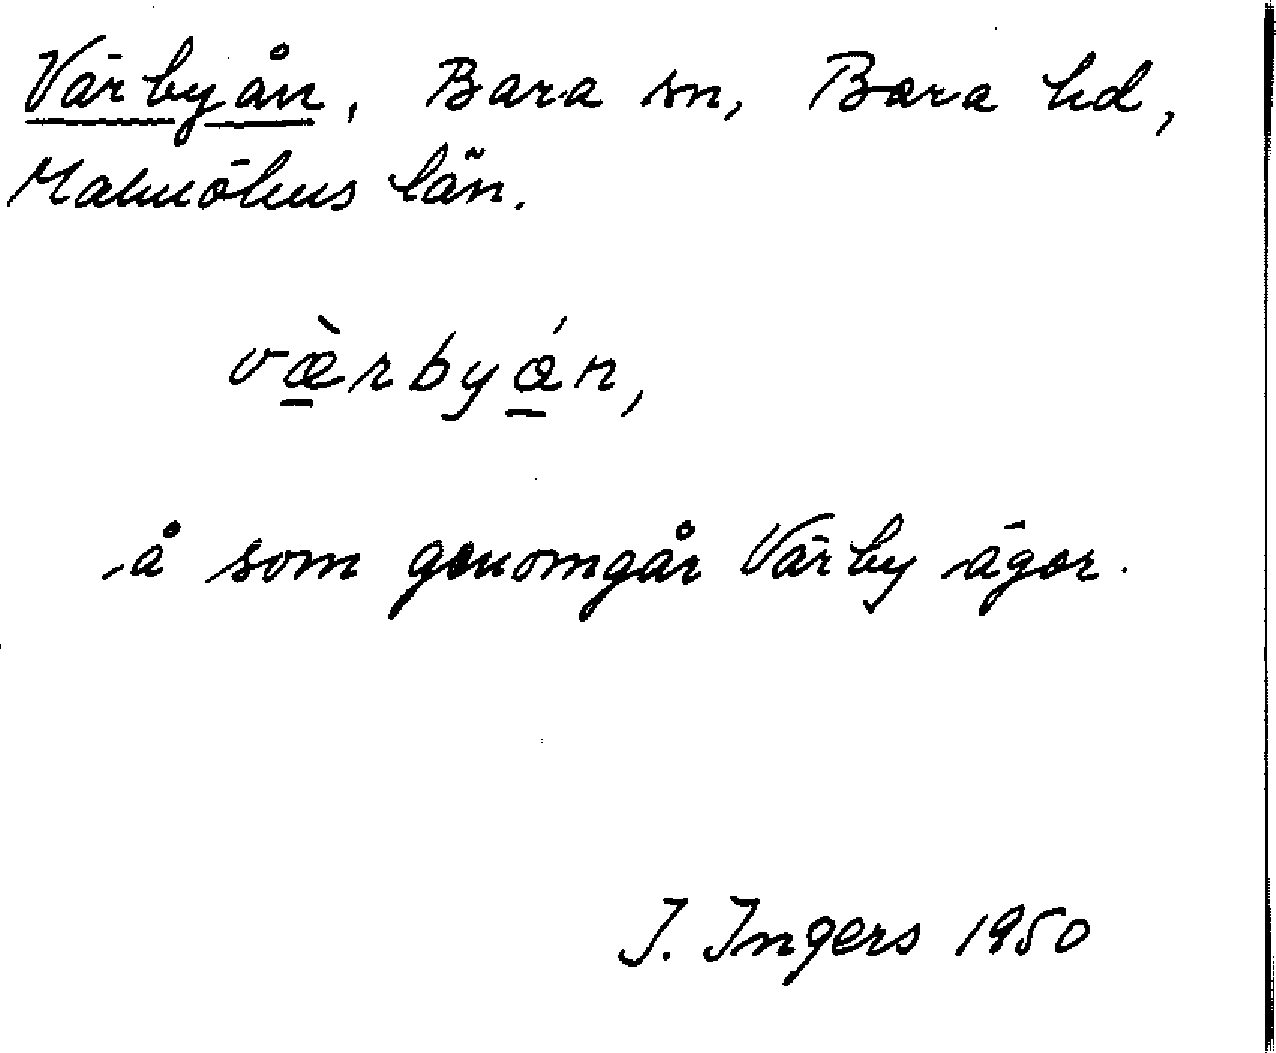 Värbyån, Bara sn, Bara hd,
Malmöhus län.
væ̱̀rbyá̱n,
å som genomgår Värby ägor.
I. Ingers 1950